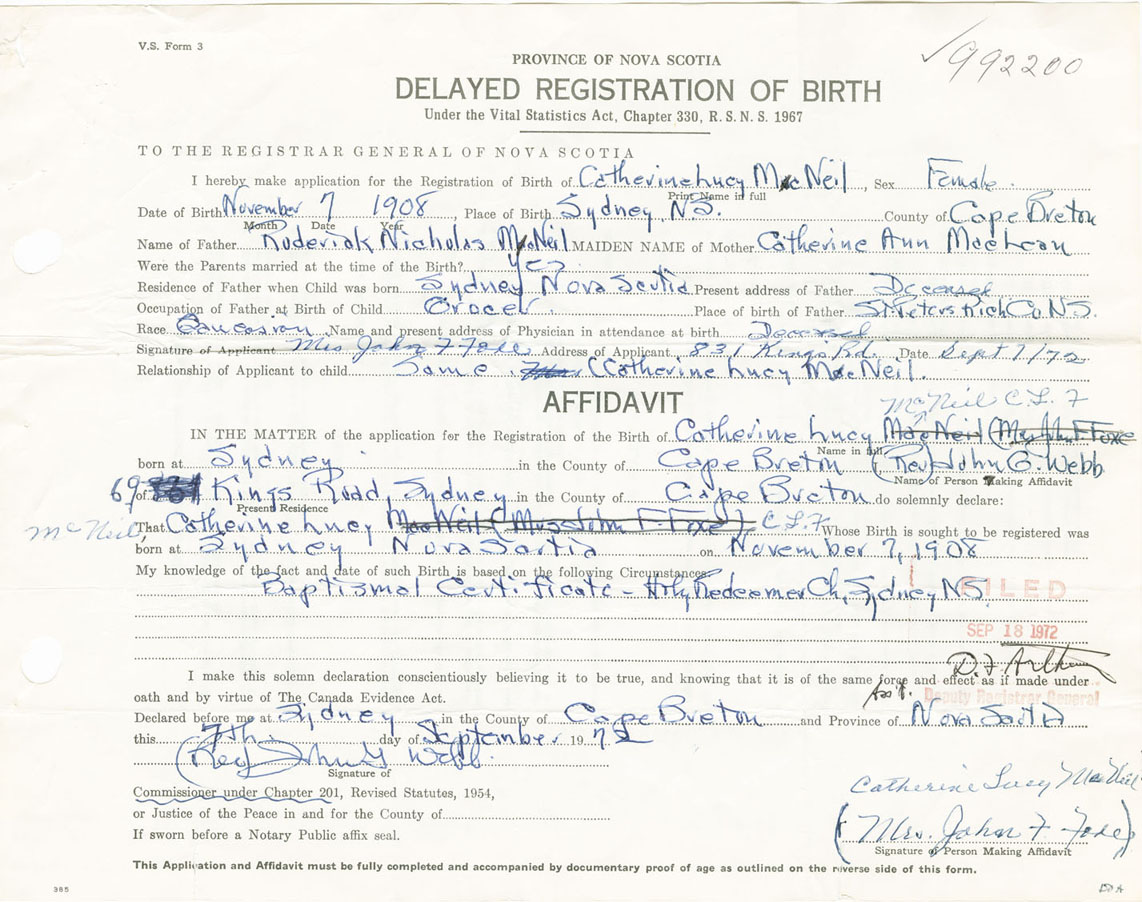 V.S. Form 3
992200
PROVINCE OF NOVA SCOTIA
DELAYED REGISTRATION OF BIRTH
Under the Vital Statistics Act, Chapter 330, R.S.N.S. 1967
TO THE REGISTRAR GENERAL OF NOVA SCOTIA
I hereby make application for the Registration of Birth of Catherine Lucy MacNeil, Sex Female.
Print Name in full
Date of Birth November 7 1908, Place of Birth Sydney NS. County of Cape Breton
Month Date Year
Name of Father Roderick Nicholas MacNeil MAIDEN NAME of Mother Catherine Ann MacLean
Were the Parents married at the time of the Birth? Yes
Residence of Father when Child was born Sydney Nova Scotia Present address of Father Deceased
Occupation of Father at Birth of Child Grocer. Place of birth of Father St. Peters Rich Co. N.S.
Race Caucasian Name and present address of Physician in attendance at birth Deceased
Signature of Applicant Mrs John F Foxe Address of Applicant 831 Kings Rd. Date Sept 7/72
Relationship of Applicant to child Same (Catherine Lucy MacNeil.
AFFIDAVIT
McNeil C. L. F
IN THE MATTER of the application for the Registration of the Birth of Catherine Lucy MacNeil (Mrs John F. Foxe
Name in full
born at Sydney in the County of Cape Breton (Rev) John G. Webb
Name of Person Making Affidavit
69 of Kings Road, Sydney in the County of Cape Breton do solemnly declare:
Present Residence
McNeil, That Catherine Lucy MacNeil (Mrs John F. Foxe) C L F Whose Birth is sought to be registered was
born at Sydney Nova Scotia on November 7, 1908
My knowledge of the fact and date of such Birth is based on the following Circumstances
Baptismal Certificate - Holy Redeemer Ch, Sydney NS.
FILED
SEP 18 1972
I make this solemn declaration conscientiously believing it to be true, and knowing that it is of the same force and effect as if made under
oath and by virtue of The Canada Evidence Act.
Ass't. Deputy Registrar General
Declared before me at Sydney in the County of Cape Breton and Province of Nova Scotia
this 7th day of September 1972
(Rev) John G Webb.
Signature of
Commissioner under Chapter 201, Revised Statutes, 1954,
or Justice of the Peace in and for the County of
If sworn before a Notary Public affix seal.
Catherine Lucy MacNeil
(Mrs. John F. Foxe)
Signature of Person Making Affidavit
This Application and Affidavit must be fully completed and accompanied by documentary proof of age as outlined on the reverse side of this form.
385